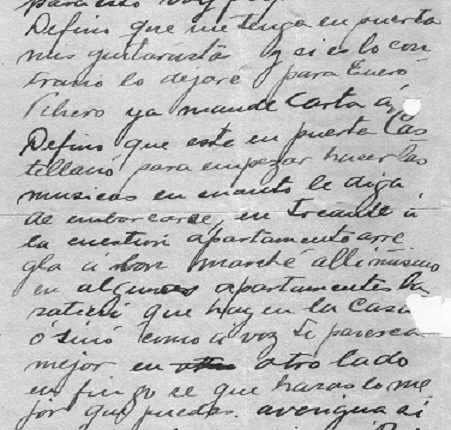 Defino que me tenga en puerta
mis guitarista y si es lo con
trario lo dejaré para Enero
Pibero ya mandé Carta á
Defino que este en puerta Cas
tellano para empezar hacer las
musicas en cuanto le diga
de embarcarse, en treante á
la cuestion apartamento arre
gla á bon marché alli mismo
en algunos apartamentos ba
ratieli que hay en la Casa
ó sinó como á voz ti paresca
mejor en otro lado
en fin yo se que haras lo me
jor que puedas. averigua si